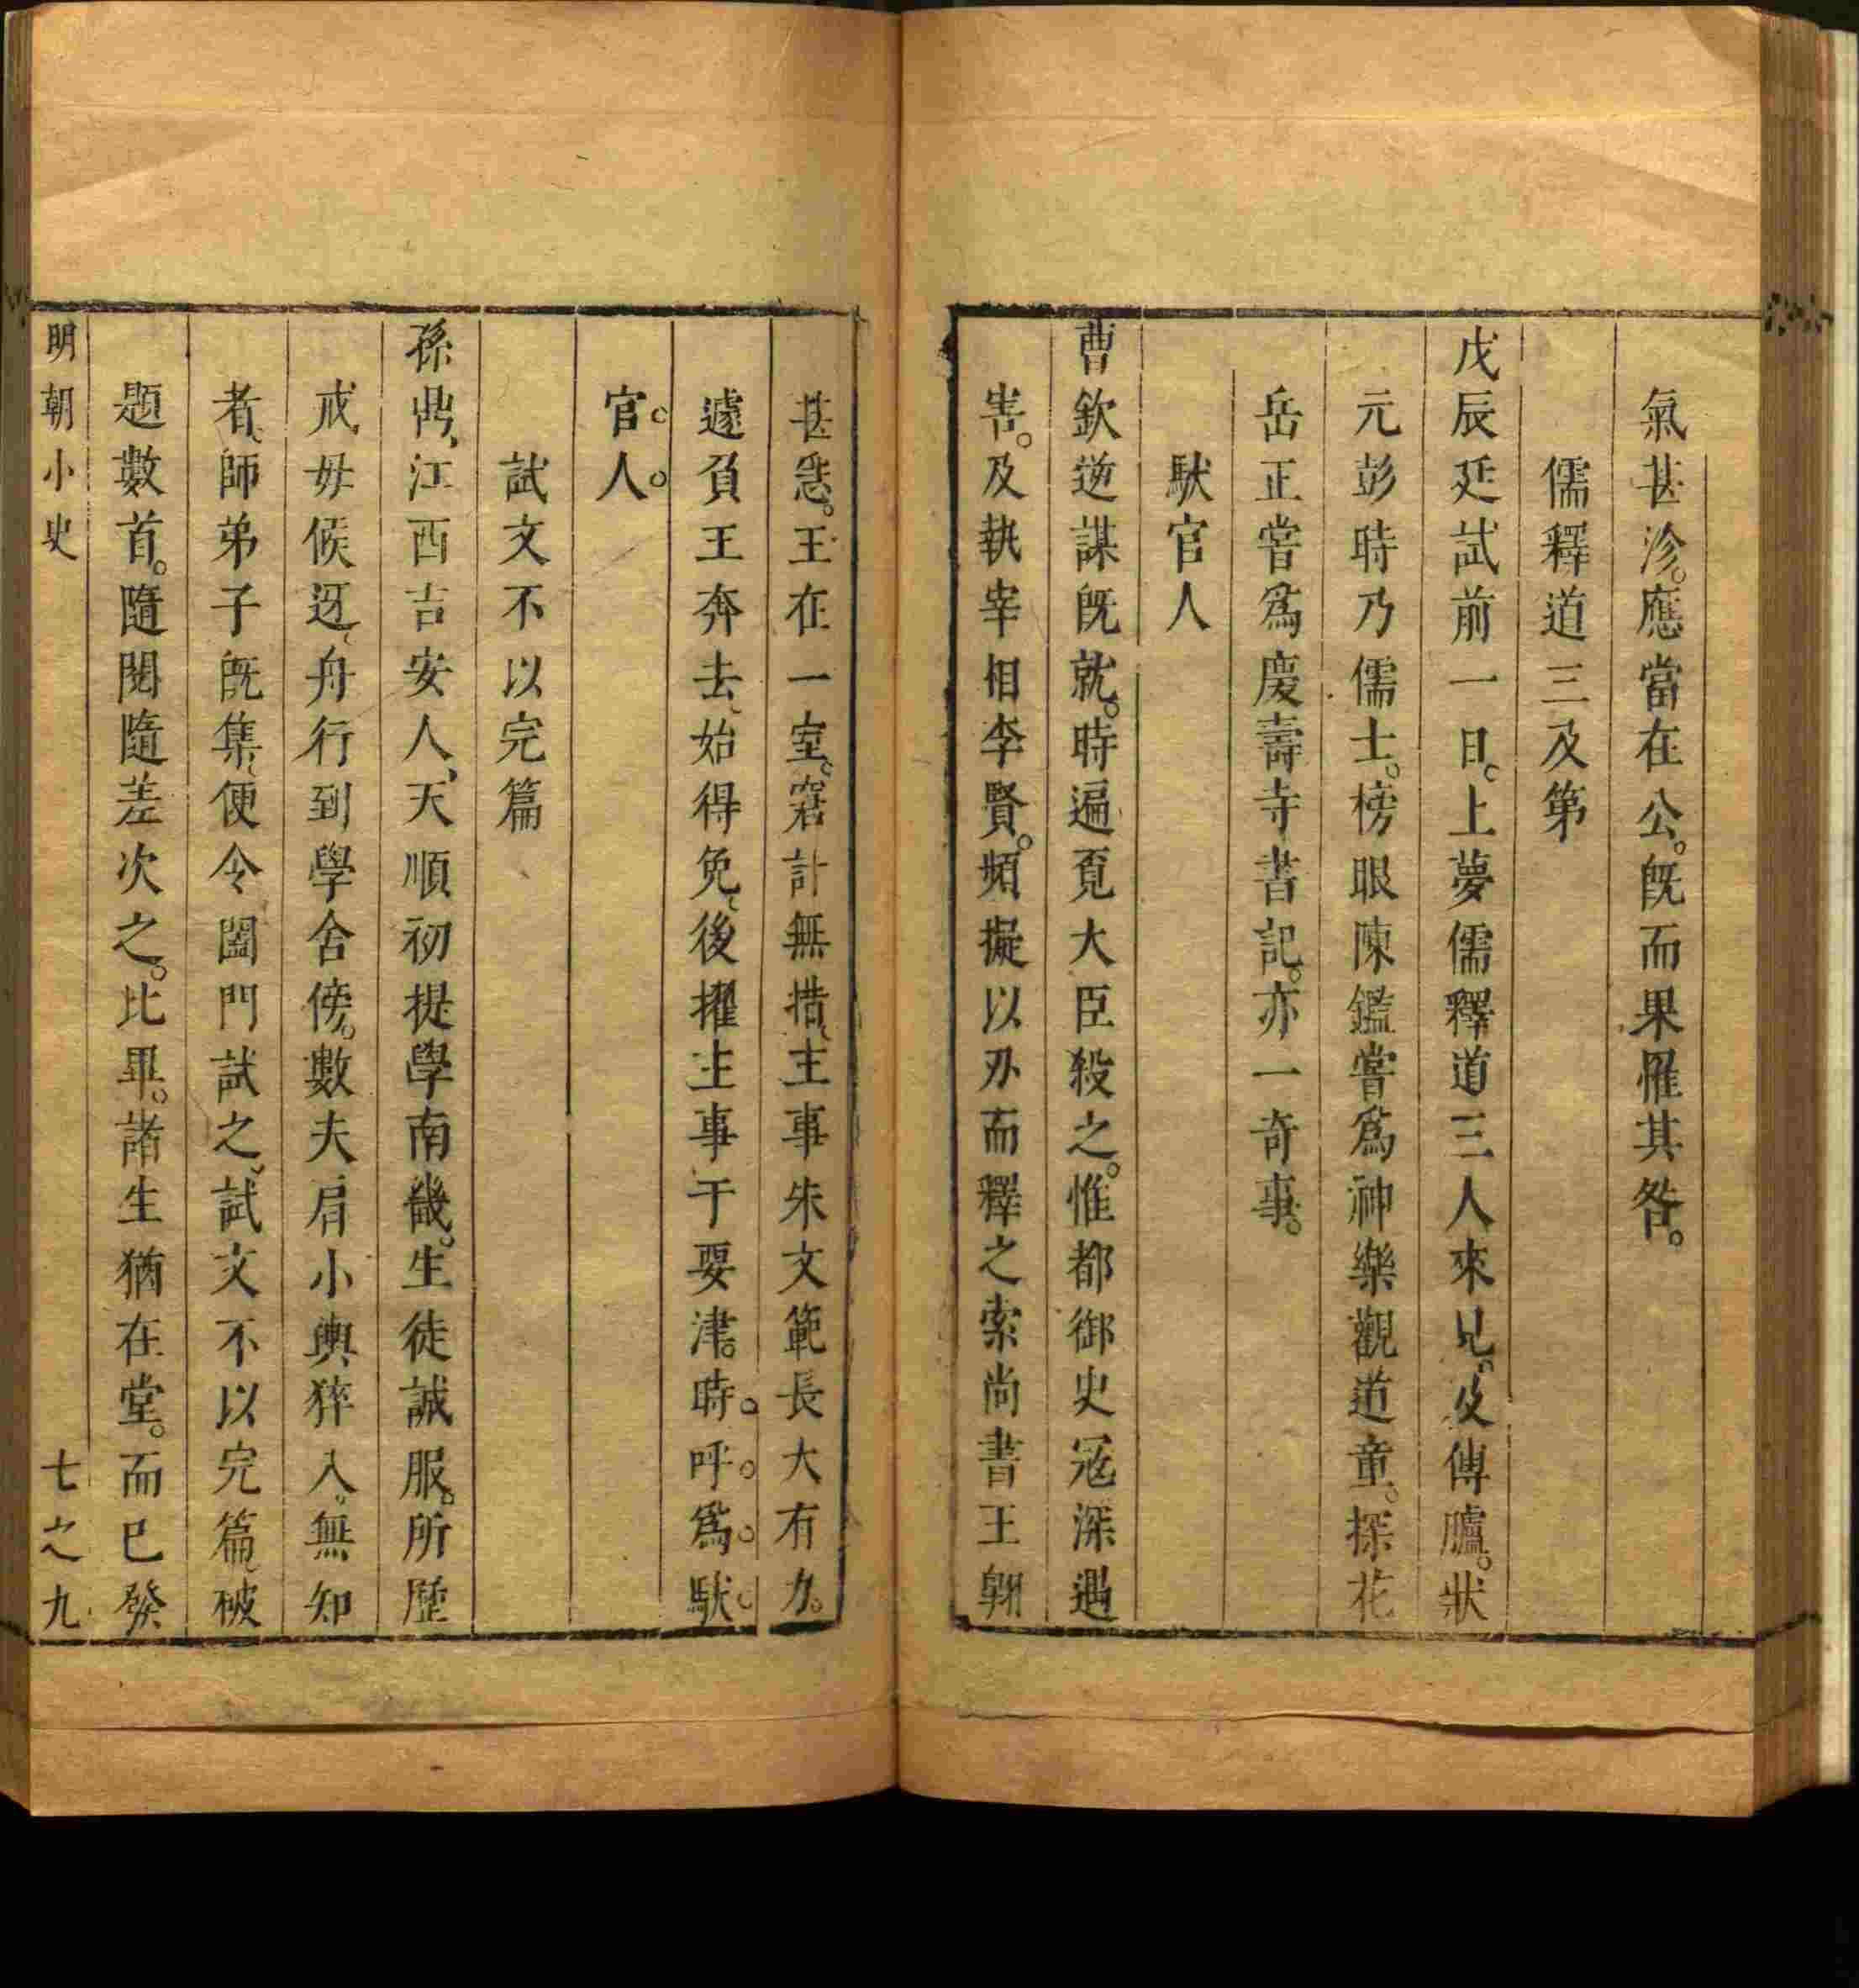 氣甚沴。應當在公。既而果罹其咎。
儒釋道三及第
戊辰廷試前一日。上夢儒釋道三人來見。及傳臚。狀
元彭時乃儒士。榜眼陳鑑嘗爲神樂觀道童。探花
岳正嘗爲慶壽寺書記。亦一奇事。
馱官人
曹欽逆謀既就。時遍覓大臣殺之。惟都御史寇深遇
害。及執宰相李賢。頻擬以刃而釋之索尚書王翱
甚急。王在一室。窘計無措、主事朱文範長大有力。
遽負王奔去、始得免、後擢主事于要津。時。呼。爲。馱。
官。人。
試文不以完篇
孫鼎、江西吉安人、天順初提學南畿。生徒誠服。所歷
戒毋候迓、舟行到學舍傍。數夫肩小輿、猝入、無知
者、師弟子既集、便令闔門試之、試文不以完篇、破
題數首。隨閱隨差次之。比畢。諸生猶在堂。而已發
明朝小史
七之九